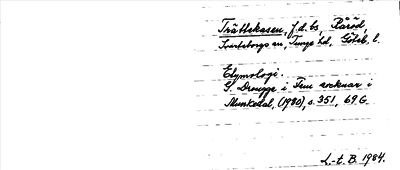 Trättekasen, f.d. bs, Råröd,
Svarteborgs sn, Tunge hd, Göteb. l.
Etymologi.
G. Drougge i Fem socknar i
Munkedal, (1980), s. 351, 696
L-t. B. 1984.